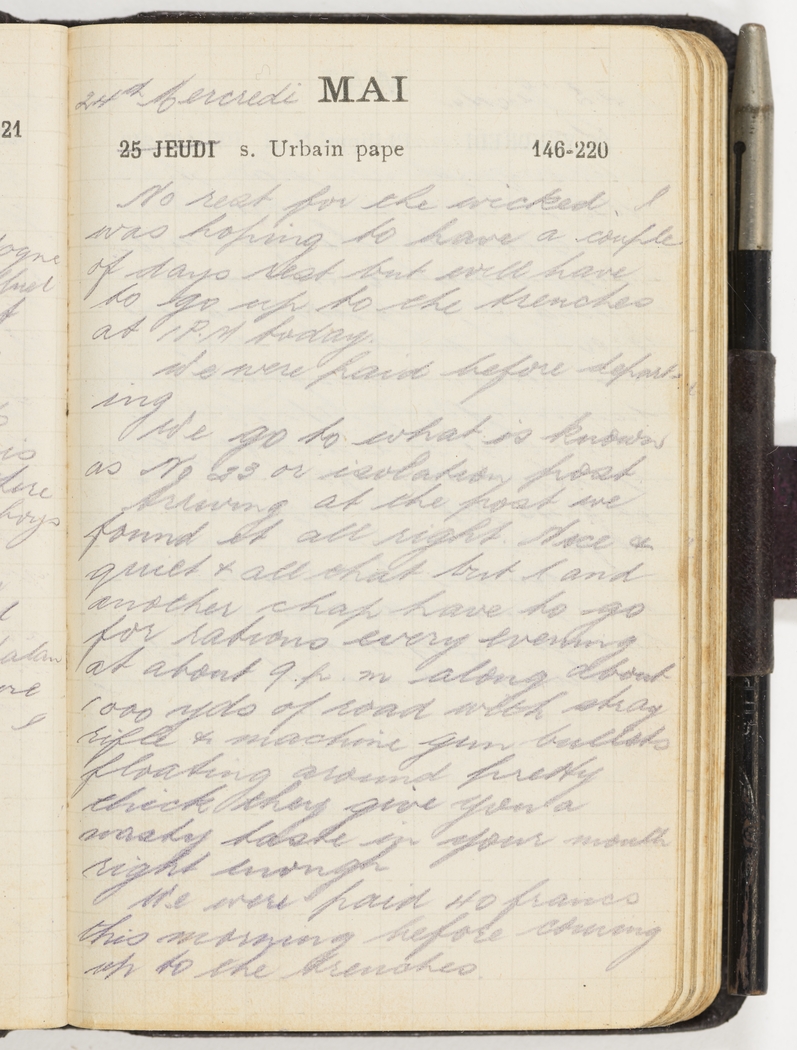 21
24th Mercredi MAI
25 JEUDI s. Urbain pape 146-220
No rest for the wicked. I
was hoping to have a couple
of days rest but will have
to go up to the trenches
at 1 P.M today.
We were paid before depart-
ing
We go to what is known
as No 23 or isolation post
Arriving at the post we
found it all right. Nice &
quiet & all that but I and
another chap have to go
for rations every evening
at about 9 p. m along about
1000 yds of road with stray
rifle & machine gun bullets
floating around pretty
thick they give you a
nasty taste in your mouth
right enough
We were paid 40 francs
this morning before coming
up to the trenches.